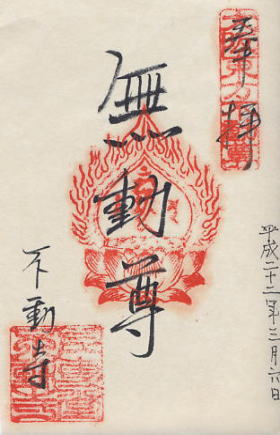 奉拝
平成二十二年三月六日
無動尊
不動寺